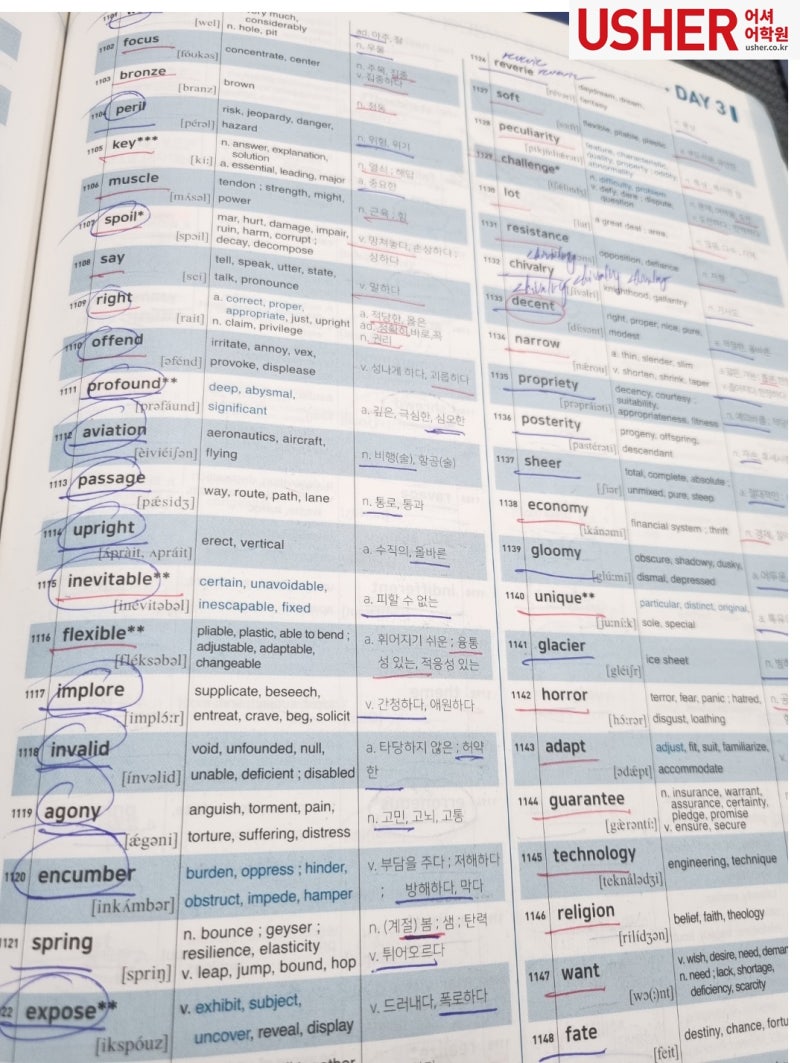 USHER 어셔
어학원
usher.co.kr
DAY 3
considerably
[wel] n. hole, pit
ad. 아주, 잘
n. 우물
1102 focus
[fóukəs] concentrate, center
n. 주목, 집중
v. 집중하다
1103 bronze
[branz] brown
n. 청동
1104 peril
[pérəl] risk, jeopardy, danger,
hazard
n. 위험, 위기
1105 key***
[ki:] n. answer, explanation,
solution
a. essential, leading, major
n. 열쇠 ; 해답
a. 중요한
1106 muscle
[mʌ́səl] tendon ; strength, might,
power
n. 근육 ; 힘
1107 spoil*
[spɔil] mar, hurt, damage, impair,
ruin, harm, corrupt ;
decay, decompose
v. 망쳐놓다, 손상하다 ;
상하다
1108 say
[sei] tell, speak, utter, state,
talk, pronounce
v. 말하다
1109 right
[rait] a. correct, proper,
appropriate, just, upright
n. claim, privilege
a. 적당한, 옳은
ad. 정확히, 바로, 꼭
n. 권리
1110 offend
[əfénd] irritate, annoy, vex,
provoke, displease
v. 성나게 하다, 괴롭히다
1111 profound**
[prəfáund] deep, abysmal,
significant
a. 깊은, 극심한, 심오한
1112 aviation
[èiviéiʃən] aeronautics, aircraft,
flying
n. 비행(술), 항공(술)
1113 passage
[pǽsidʒ] way, route, path, lane
n. 통로, 통과
1114 upright
[ʌ́pràit, ʌpráit] erect, vertical
a. 수직의, 올바른
1115 inevitable**
[inévitəbəl] certain, unavoidable,
inescapable, fixed
a. 피할 수 없는
1116 flexible**
[fléksəbəl] pliable, plastic, able to bend ;
adjustable, adaptable,
changeable
a. 휘어지기 쉬운 ; 융통
성 있는, 적응성 있는
1117 implore
[implɔ́:r] supplicate, beseech,
entreat, crave, beg, solicit
v. 간청하다, 애원하다
1118 invalid
[ínvəlid] void, unfounded, null,
unable, deficient ; disabled
a. 타당하지 않은 ; 허약
한
1119 agony
[ǽgəni] anguish, torment, pain,
torture, suffering, distress
n. 고민, 고뇌, 고통
1120 encumber
[inkʌ́mbər] burden, oppress ; hinder,
obstruct, impede, hamper
v. 부담을 주다 ; 저해하다
; 방해하다, 막다
1121 spring
[spriŋ] n. bounce ; geyser ;
resilience, elasticity
v. leap, jump, bound, hop
n. (계절) 봄 ; 샘 ; 탄력
v. 튀어오르다
22 expose**
[ikspóuz] v. exhibit, subject,
uncover, reveal, display
v. 드러내다, 폭로하다
reverie
1126 reverie reverie
daydream, dream,
fantasy
1127 soft
flexible, pliable, plastic
1128 peculiarity
feature, characteristic,
quality, property ; oddity,
abnormality
1129 challenge*
n. difficulty, problem
v. defy, dare ; dispute,
question
1130 lot
a great deal ; area,
1131 resistance
opposition, defiance
chivalry
1132 chivalry
knighthood, gallantry
chivalry chivalry chivalry
1133 decent
[dí:sənt] right, proper, nice, pure,
modest
1134 narrow
[nǽrou] a. thin, slender, slim
v. shorten, shrink, taper
1135 propriety
[prəpráiəti] decency, courtesy ;
suitability,
appropriateness, fitness
1136 posterity
[pastérəti] progeny, offspring,
descendant
1137 sheer
[ʃiər] total, complete, absolute ;
unmixed, pure, steep
a. 절대적인
1138 economy
[ikánəmi] financial system ; thrift
n. 경제
1139 gloomy
[glú:mi] obscure, shadowy, dusky,
dismal, depressed
1140 unique**
[ju:ní:k] particular, distinct, original,
sole, special
1141 glacier
[gléiʃr] ice sheet
1142 horror
[hɔ́:rər] terror, fear, panic ; hatred,
disgust, loathing
1143 adapt
[ədǽpt] adjust, fit, suit, familiarize,
accommodate
1144 guarantee
[gæ̀rənti:] n. insurance, warrant,
assurance, certainty,
pledge, promise
v. ensure, secure
1145 technology
[teknálədʒi] engineering, technique
1146 religion
[rilídʒən] belief, faith, theology
1147 want
[wɔ(:)nt] v. wish, desire, need,
n. need ; lack, shortage,
deficiency, scarcity
1148 fate
[feit] destiny, chance,